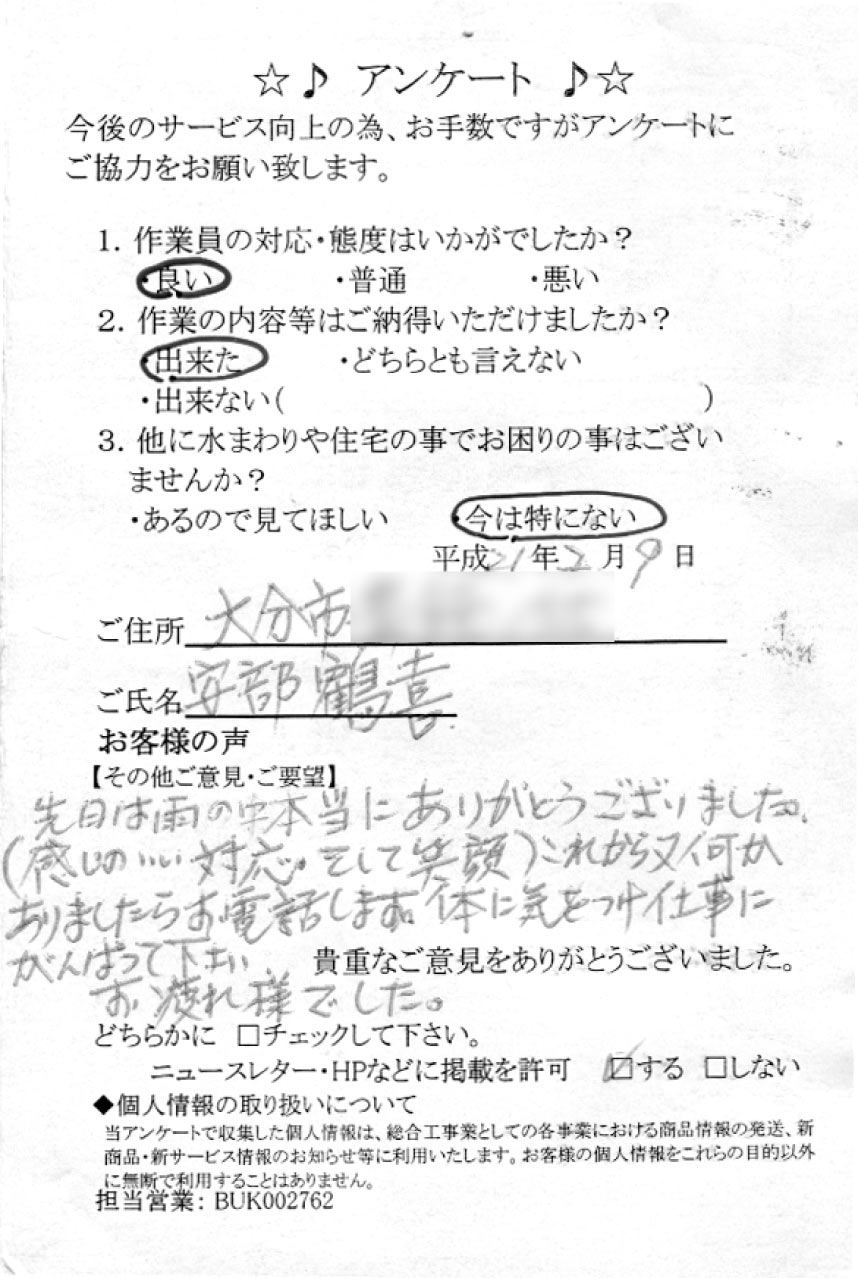 ☆♪ アンケート ♪☆
今後のサービス向上の為、お手数ですがアンケートに
ご協力をお願い致します。
1. 作業員の対応・態度はいかがでしたか？
・良い ・普通 ・悪い
2. 作業の内容等はご納得いただけましたか？
・出来た ・どちらとも言えない
・出来ない( )
3. 他に水まわりや住宅の事でお困りの事はござい
ませんか？
・あるので見てほしい ・今は特にない
平成21年2月9日
ご住所 大分市
ご氏名 安部鶴喜
お客様の声
【その他ご意見・ご要望】
先日は雨の中本当にありがとうございました。
(感じのいい対応。そして笑顔)これから又何か
ありましたらお電話します。体に気をつけ仕事に
がんばって下さい
貴重なご意見をありがとうございました。
お疲れ様でした。
どちらかに □チェックして下さい。
ニュースレター・HPなどに掲載を許可 ☑する □しない
◆個人情報の取り扱いについて
当アンケートで収集した個人情報は、総合工事業としての各事業における商品情報の発送、新
商品・新サービス情報のお知らせ等に利用いたします。お客様の個人情報をこれらの目的以外
に無断で利用することはありません。
担当営業: BUK002762